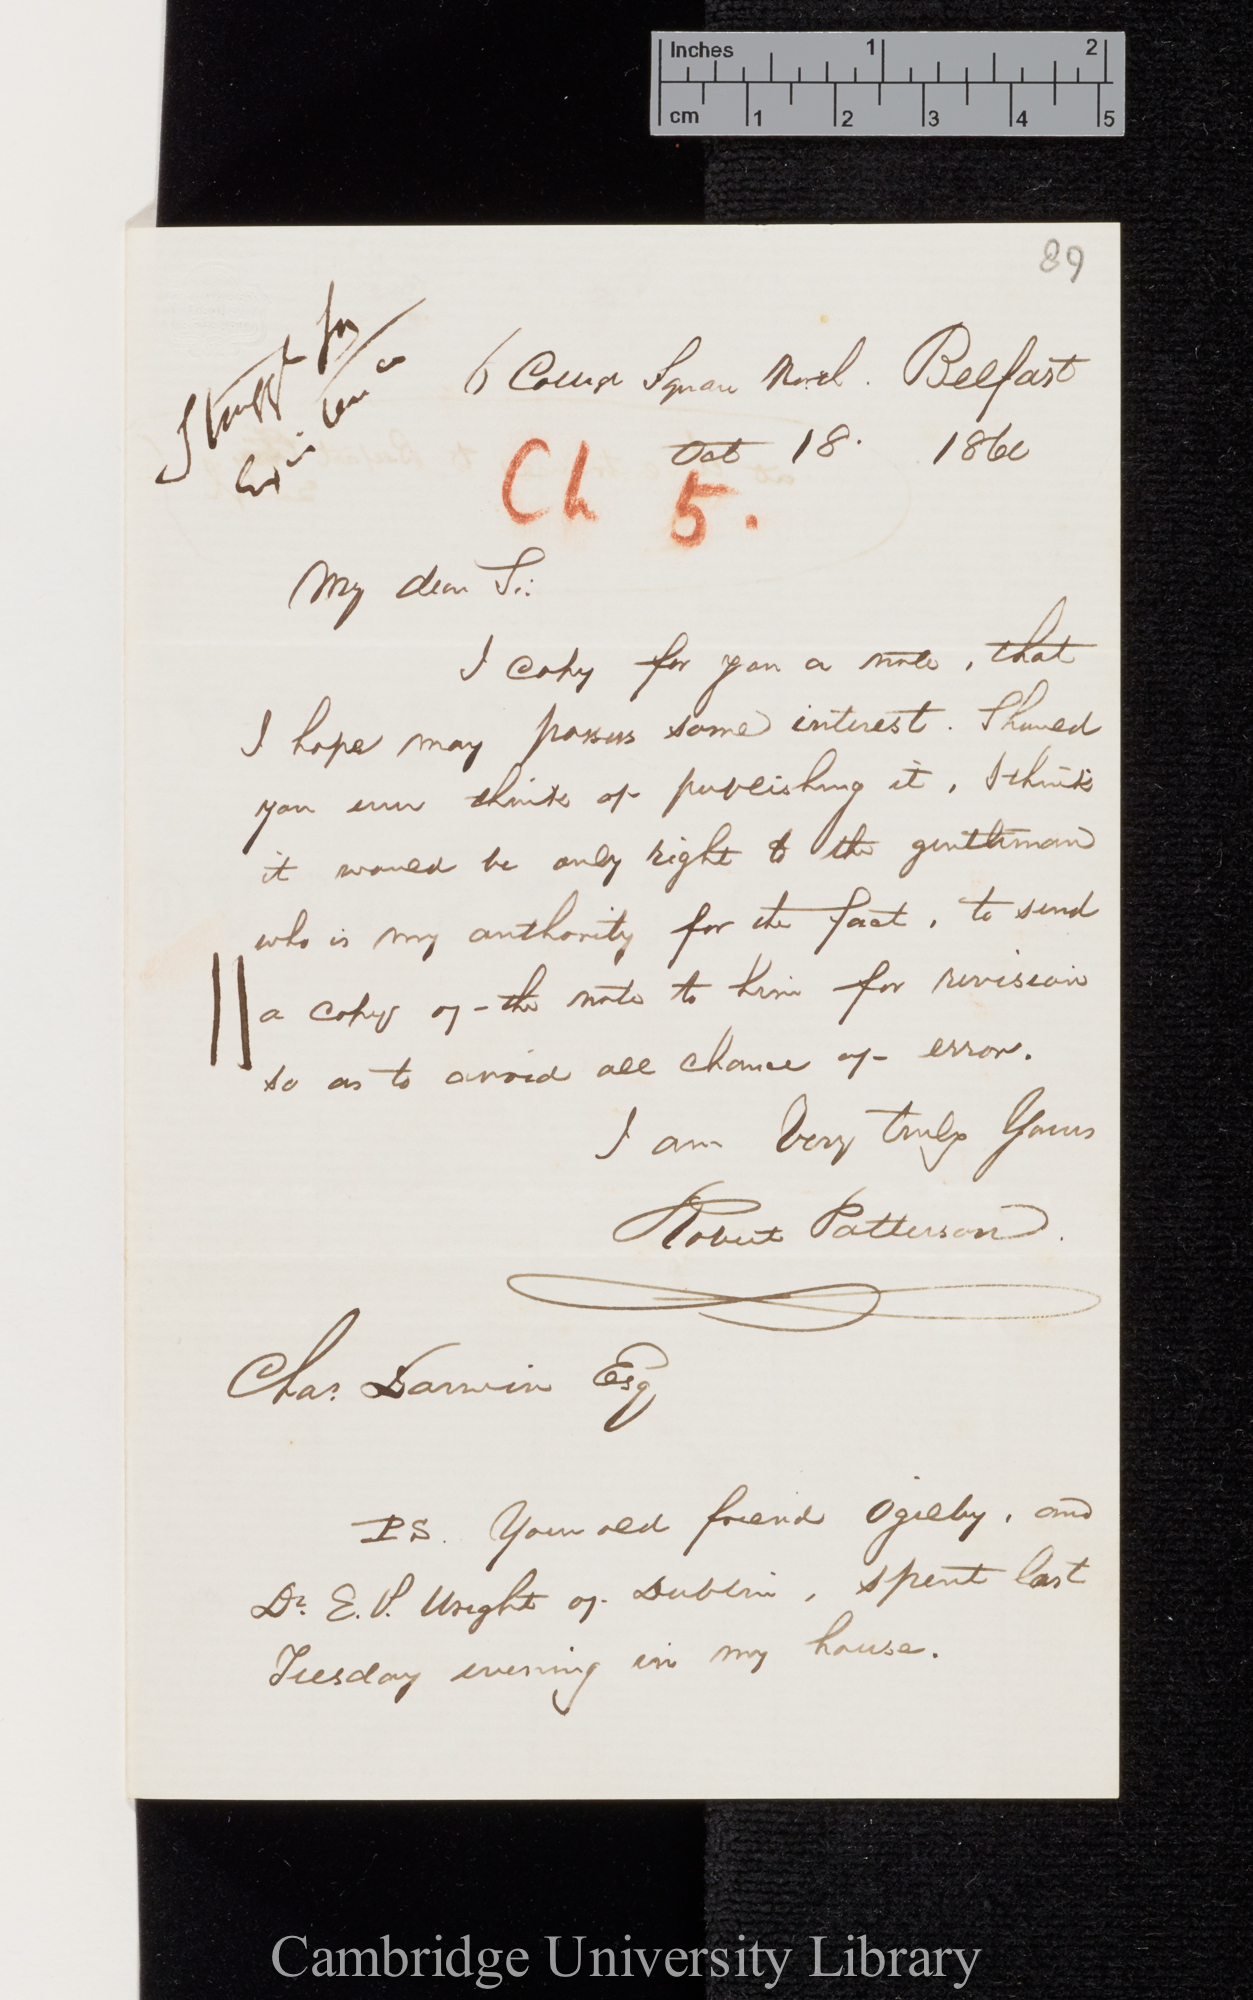 Inches 1 2
cm 1 2 3 4 5
89
for
6 College Square North. Belfast
Oct 18. 1860
Ch 5.
My dear Sir:
I copy for you a note, that
I hope may possess some interest. Should
you ever think of publishing it, I think
it would be only right to the gentleman
who is my authority for the fact, to send
a copy of the note to him for revision
so as to avoid all chance of error.
I am Very truly Yours
Robert Patterson.
Chas. Darwin Esq
PS. Your old friend Ogilby, and
Dr. E. P. Wright of Dublin, spent last
Tuesday evening in my house.
Cambridge University Library